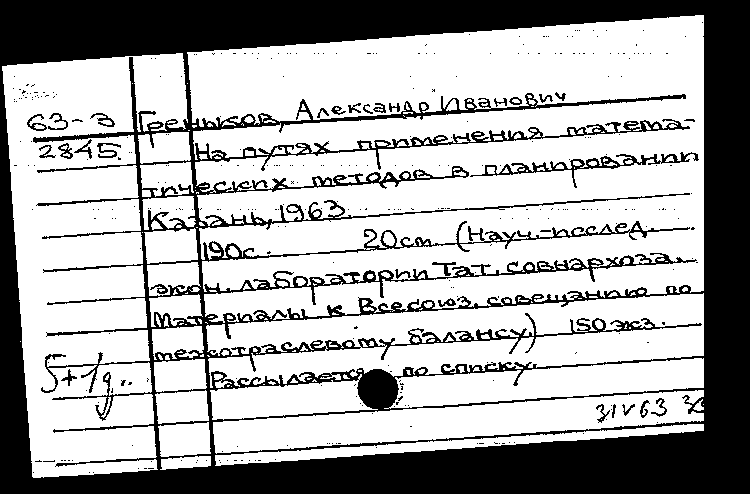 63-3 Греньков, Александр Иванович
2845. На путях применения матема-
тических методов в планировании
Казань, 1963.
190с. 20см. (Науч.-исслед.
экон. лаборатории Тат. совнархоза.
Материалы к Всесоюз. совещанию по
межотраслевому балансу) 150 экз.
5+1д.. Рассылается по списку.
31 V 63